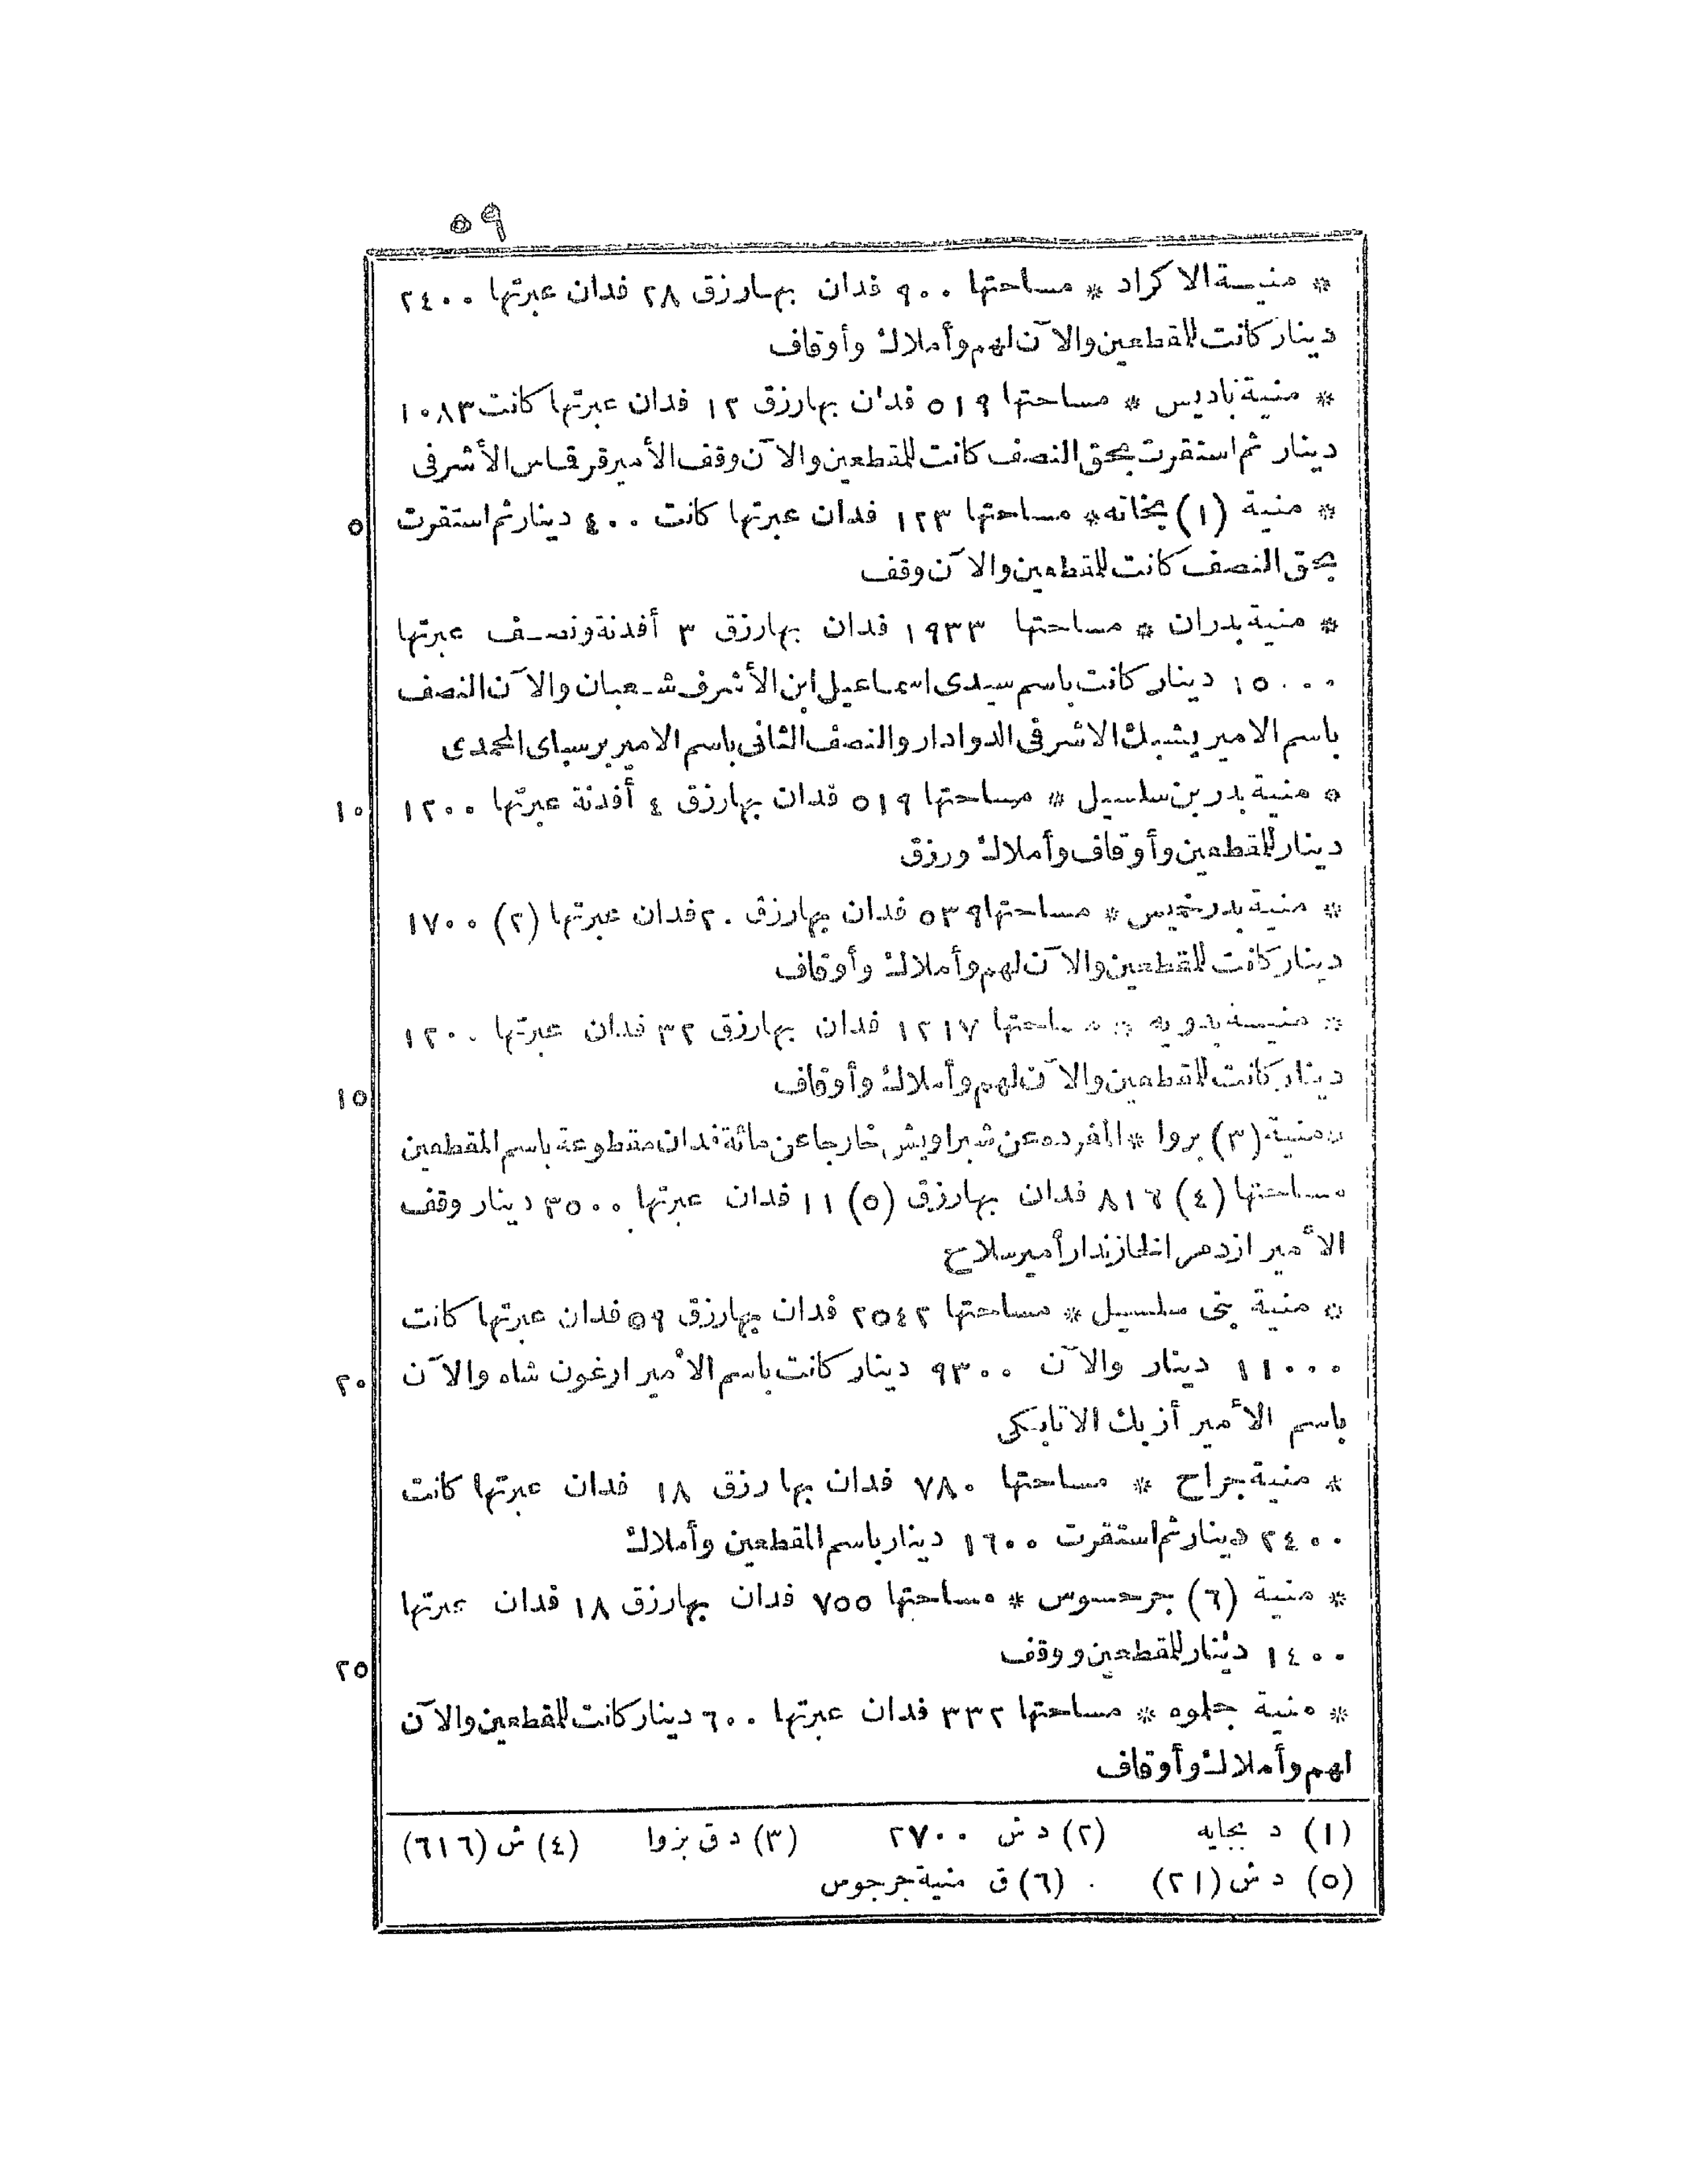 ٥٩
* منية الاكراد * مساحتها ٩٠٠ فدان بهارزق ٢٨ فدان عبرتها ٢٤٠٠
دينار كانت للمقطعين والآن لهم وأملاك وأوقاف
* منية باديس * مساحتها ٥١٩ فدان بهارزق ١٢ فدان عبرتها كانت ١٠٨٣
دينار ثم استقرت بحق النصف كانت للمقطعين والآن وقف الأمير قرقماس الأشرفى
* منية (١) بخانه * مساحتها ١٢٣ فدان عبرتها كانت ٤٠٠ دينار ثم استقرت
٥
بحق النصف كانت للمقطعين والآن وقف
* منية بدران * مساحتها ١٩٣٣ فدان بهارزق ٣ أفدنة ونصف عبرتها
١٥٠٠٠ دينار كانت باسم سيدى اسماعيل ابن الأشرف شعبان والآن النصف
باسم الامير يشبك الاشرفى الدوادار والنصف الثانى باسم الامير برسباى المحمدى
* منية بدر بن سلسيل * مساحتها ٥١٩ فدان بهارزق ٤ أفدنة عبرتها ١٢٠٠
١٠
دينار للمقطعين وأوقاف وأملاك ورزق
* منية بدر خميس * مساحتها ٥٣٩ فدان بهارزق ٢٠ فدان عبرتها (٢) ١٧٠٠
دينار كانت للمقطعين والآن لهم وأملاك وأوقاف
* منية بدويه * مساحتها ١٢١٧ فدان بهارزق ٣٢ فدان عبرتها ١٢٠٠
دينار كانت للمقطعين والآن لهم وأملاك وأوقاف
١٥
* منية (٣) بروا * المفرده عن شبراويش خارجا عن مائة فدان مقطوعة باسم المقطعين
مساحتها (٤) ٨١٦ فدان بهارزق (٥) ١١ فدان عبرتها ٣٥٠٠ دينار وقف
الأمير ازدمر الخازندار أمير سلاح
* منية بنى سلسيل * مساحتها ٢٥٤٢ فدان بهارزق ٥٩ فدان عبرتها كانت
١١٠٠٠ دينار والآن ٩٣٠٠ دينار كانت باسم الأمير ارغون شاه والآن
٢٠
باسم الأمير أزبك الاتابكى
* منية جراح * مساحتها ٧٨٠ فدان بها رزق ١٨ فدان عبرتها كانت
٢٤٠٠ دينار ثم استقرت ١٦٠٠ دينار باسم المقطعين وأملاك
* منية (٦) جرحسوس * مساحتها ٧٥٥ فدان بهارزق ١٨ فدان عبرتها
١٤٠٠ دينار للمقطعين ووقف
٢٥
* منية جلموه * مساحتها ٣٣٢ فدان عبرتها ٦٠٠ دينار كانت للمقطعين والآن
لهم وأملاك وأوقاف
(١) د بجايه (٢) د ش ٢٧٠٠ (٣) د ق بزوا (٤) ش (٦١٦)
(٥) د ش (٢١) (٦) ق منية جرجوس